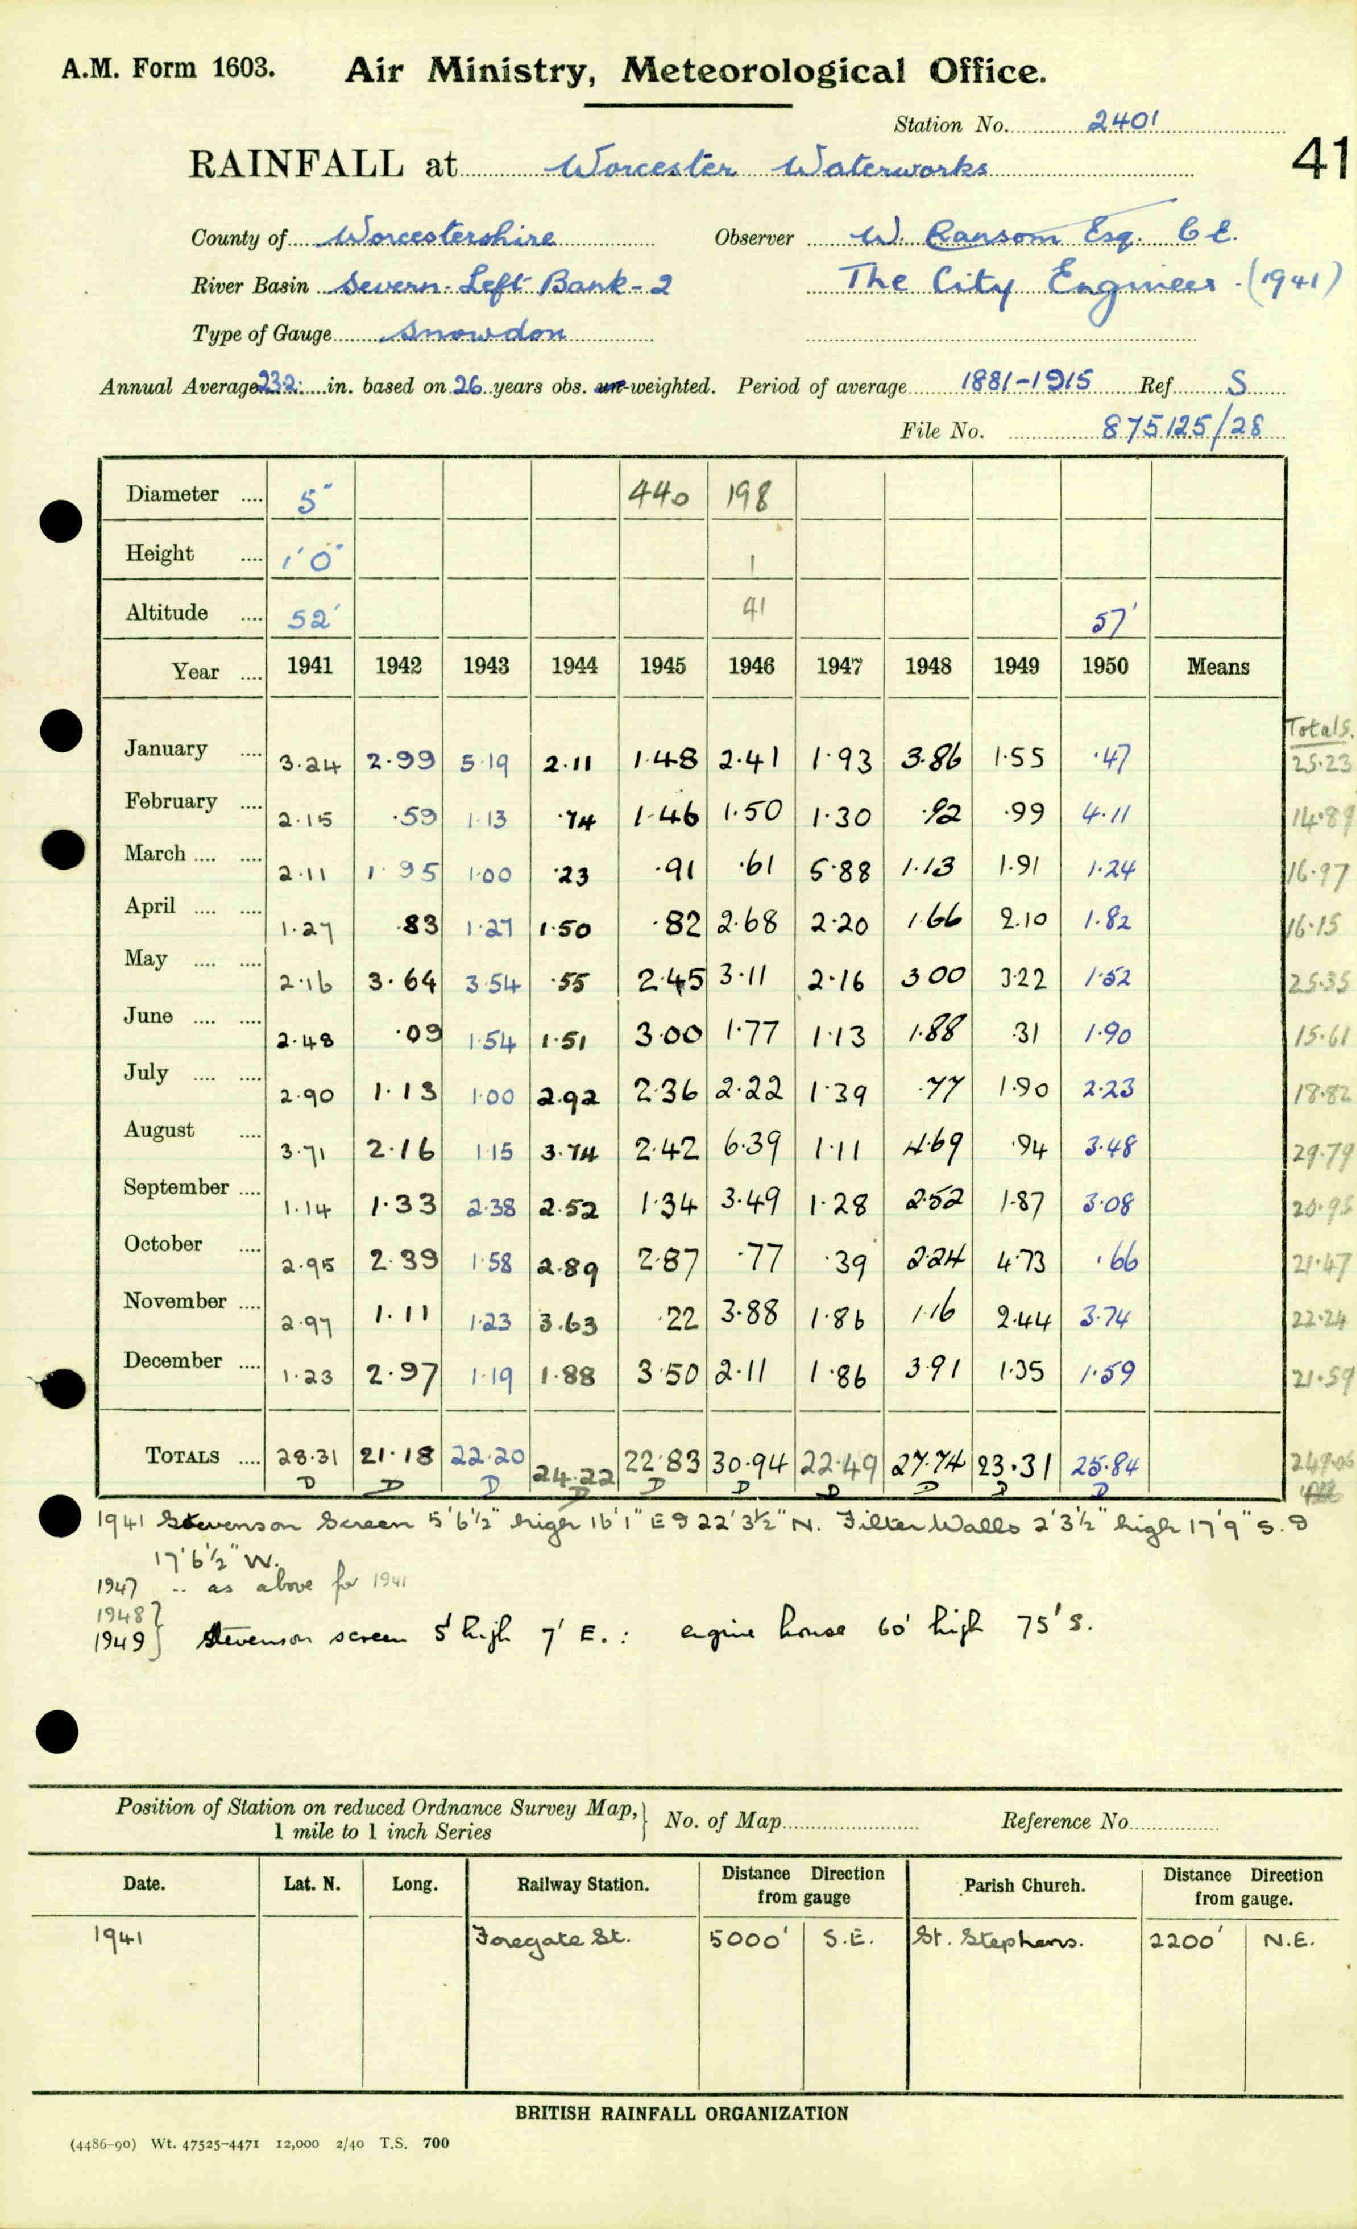 A.M. Form 1603. Air Ministry, Meteorological Office.
Station No. 2401
41
RAINFALL at Worcester Waterworks
County of Worcestershire Observer W. Ransom Esq. C.E.
River Basin Severn - Left Bank - 2 The City Engineer - (1941)
Type of Gauge Snowdon
Annual Average 23.2 in. based on 26 years obs. un-weighted. Period of average 1881-1915 Ref. S
File No. 875125/28
Diameter .... 5" 440 198
Height .... 1'0" 1
Altitude .... 52' 41 57'
Year .... 1941 1942 1943 1944 1945 1946 1947 1948 1949 1950 Means
Totals.
January .... 3.24 2.99 5.19 2.11 1.48 2.41 1.93 3.86 1.55 .47 25.23
February .... 2.15 .59 1.13 .74 1.46 1.50 1.30 .92 .99 4.11 14.89
March .... .... 2.11 1.95 1.00 .23 .91 .61 5.88 1.13 1.91 1.24 16.97
April .... .... 1.27 .83 1.27 1.50 .82 2.68 2.20 1.66 2.10 1.82 16.15
May .... .... 2.16 3.64 3.54 .55 2.45 3.11 2.16 3.00 3.22 1.52 25.35
June .... .... 2.48 .09 1.54 1.51 3.00 1.77 1.13 1.88 .31 1.90 15.61
July .... .... 2.90 1.13 1.00 2.92 2.36 2.22 1.39 .77 1.90 2.23 18.82
August .... 3.71 2.16 1.15 3.74 2.42 6.39 1.11 4.69 .94 3.48 29.79
September .... 1.14 1.33 2.38 2.52 1.34 3.49 1.28 2.52 1.87 3.08 20.95
October .... 2.95 2.39 1.58 2.89 2.87 .77 .39 2.24 4.73 .66 21.47
November .... 2.97 1.11 1.23 3.63 .22 3.88 1.86 1.16 2.44 3.74 22.24
December .... 1.23 2.97 1.19 1.88 3.50 2.11 1.86 3.91 1.35 1.59 21.59
TOTALS .... 28.31 21.18 22.20 24.22 22.83 30.94 22.49 27.74 23.31 25.84 249.06
D D D D D D D D D D
1941 Stevenson Screen 5'6½" high 16'1" E & 22'3½" N. Filter Walls 2'3½" high 17'9" S. &
17'6½" W.
1947 .. as above for 1941
1948}
1949} Stevenson screen 5' high 7' E. : engine house 60' high 75' S.
Position of Station on reduced Ordnance Survey Map,} No. of Map Reference No.
1 mile to 1 inch Series
Date. Lat. N. Long. Railway Station. Distance Direction from gauge Parish Church. Distance Direction from gauge.
1941 Foregate St. 5000' S.E. St. Stephens. 2200' N.E.
BRITISH RAINFALL ORGANIZATION
(4486-90) Wt. 47525-4471 12,000 2/40 T.S. 700